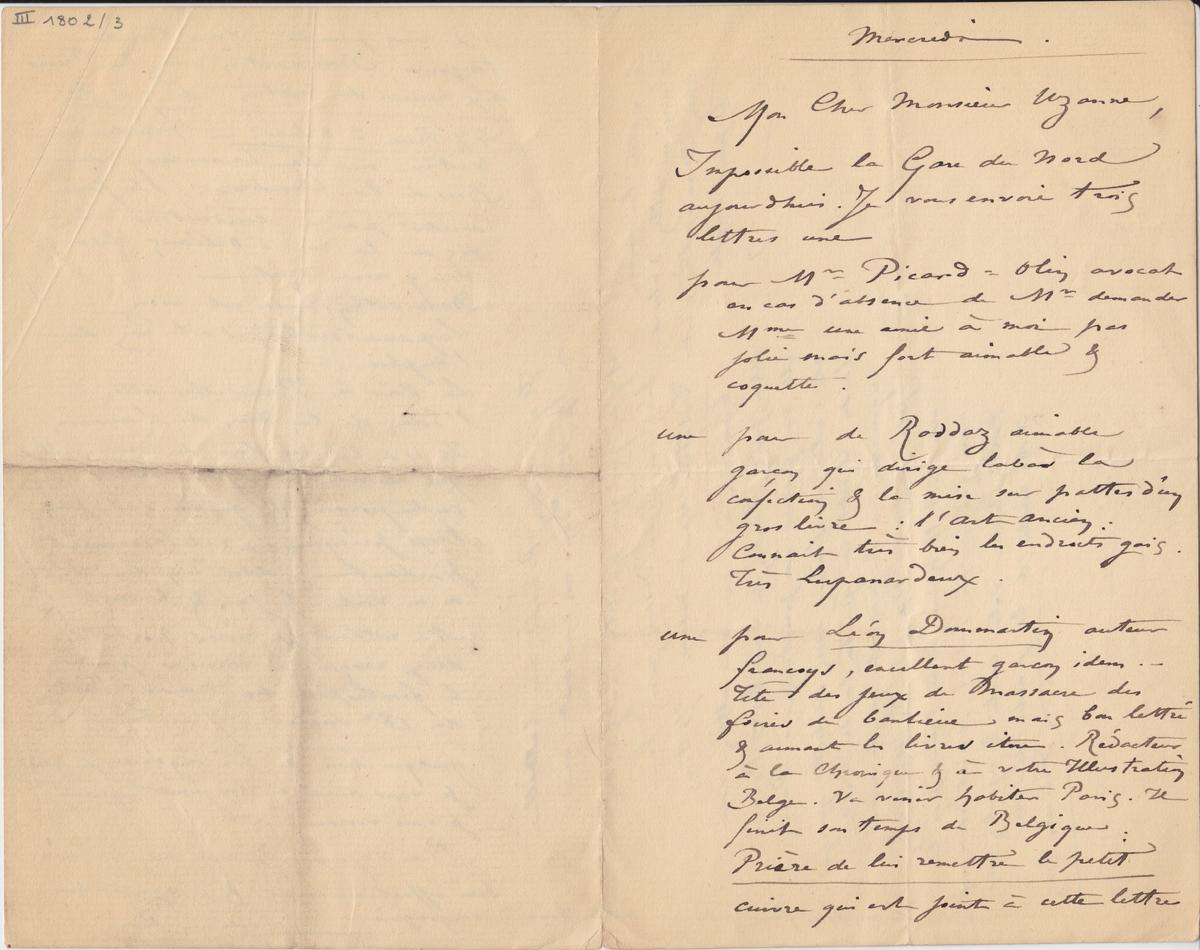 III 1802/3
Mercredi.
Mon Cher Monsieur Uzanne,
Impossible la Gare du Nord
aujourdhui. Je vous envoie trois
lettres une
pour Mr Picard = Olin avocat
en cas d'absence de Mr demander
Mme une amie à moi pas
jolie mais fort aimable &
coquette.
une pour de Roddaz aimable
garçon qui dirige labàs la
confection & la mise sur pattes d'un
gros livre : l'art ancien.
Connait très bien les endroits gais.
très Lupanardeux.
une pour Léon Dommartin auteur
françoys, excellent garçon idem. —
Tête des jeux de Massacre des
foires de banlieue mais bon lettré
& aimant les livres itou. Rédacteur
à la Chronique & à votre Illustration
Belge. Va venir habiter Paris. Il
finit son temps de Belgique.
Prière de lui remettre le petit
cuivre qui est joint à cette lettre